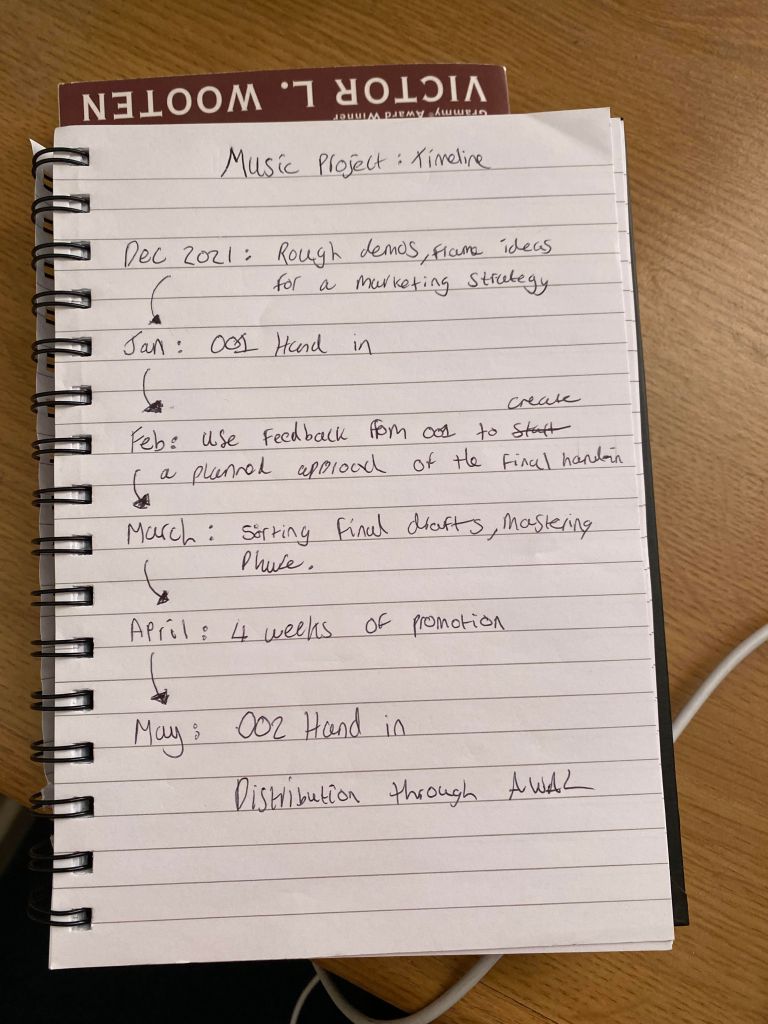 VICTOR L. WOOTEN
Grammy® Award Winner
Music Project : Timeline
Dec 2021 : Rough demos, frame ideas
for a marketing strategy
Jan : 001 Hand in
create
Feb : use feedback from 001 to start
a planned approach of the final handin
March : sorting final drafts, Mastering
Phase.
April : 4 weeks of promotion
May : 002 Hand in
Distribution through AWAL